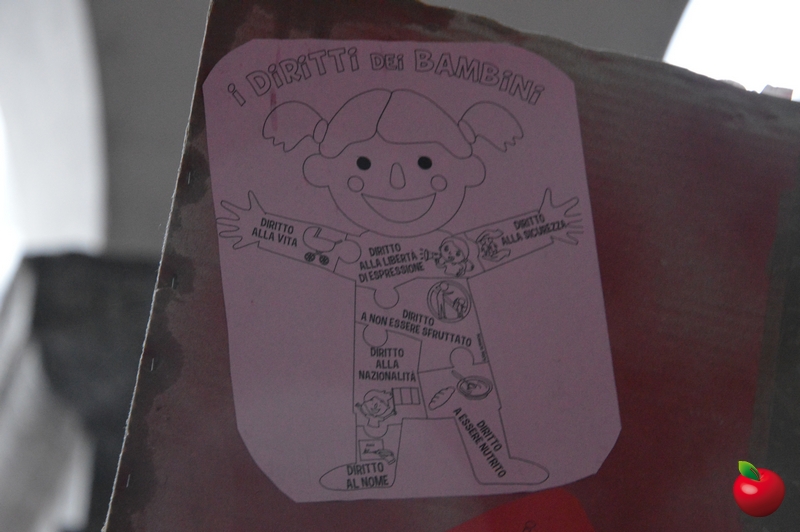 I DIRITTI DEI BAMBINI
DIRITTO
ALLA VITA
DIRITTO
ALLA LIBERTÀ
DI ESPRESSIONE
DIRITTO
ALLA SICUREZZA
DIRITTO
A NON ESSERE SFRUTTATO
DIRITTO
ALLA
NAZIONALITÀ
DIRITTO
A ESSERE NUTRITO
DIRITTO
AL NOME